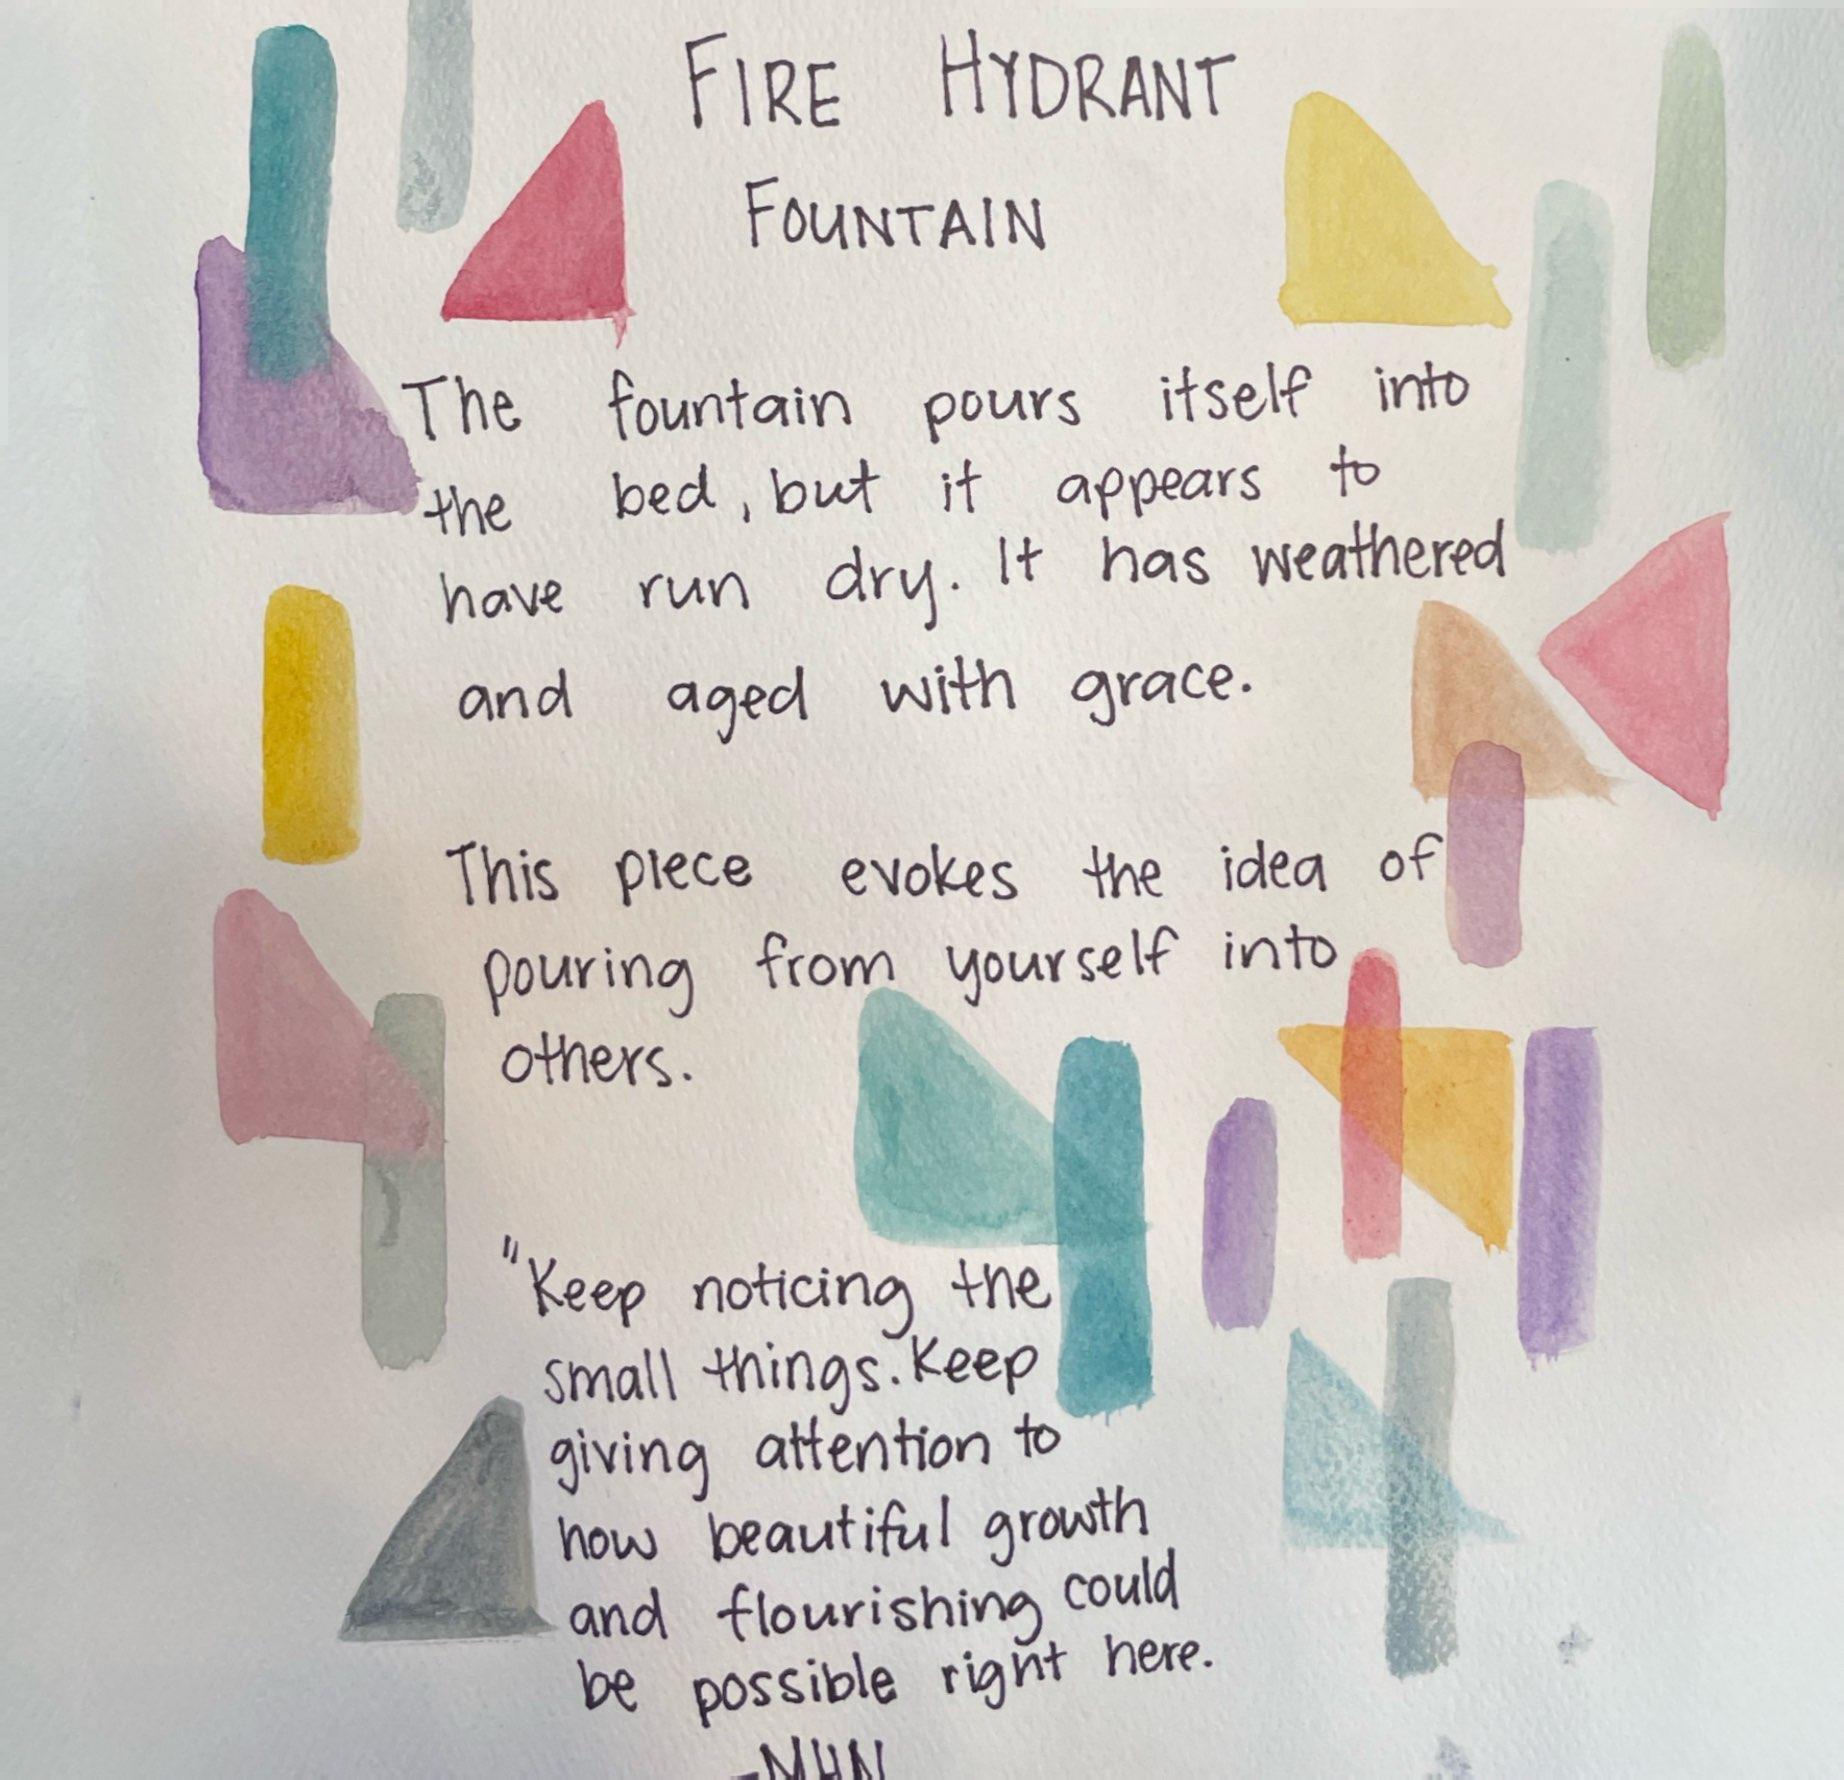 FIRE HYDRANT
FOUNTAIN
The fountain pours itself into
the bed, but it appears to
have run dry. It has weathered
and aged with grace.
This piece evokes the idea of
pouring from yourself into
others.
"Keep noticing the
small things. Keep
giving attention to
how beautiful growth
and flourishing could
be possible right here.
-MHN